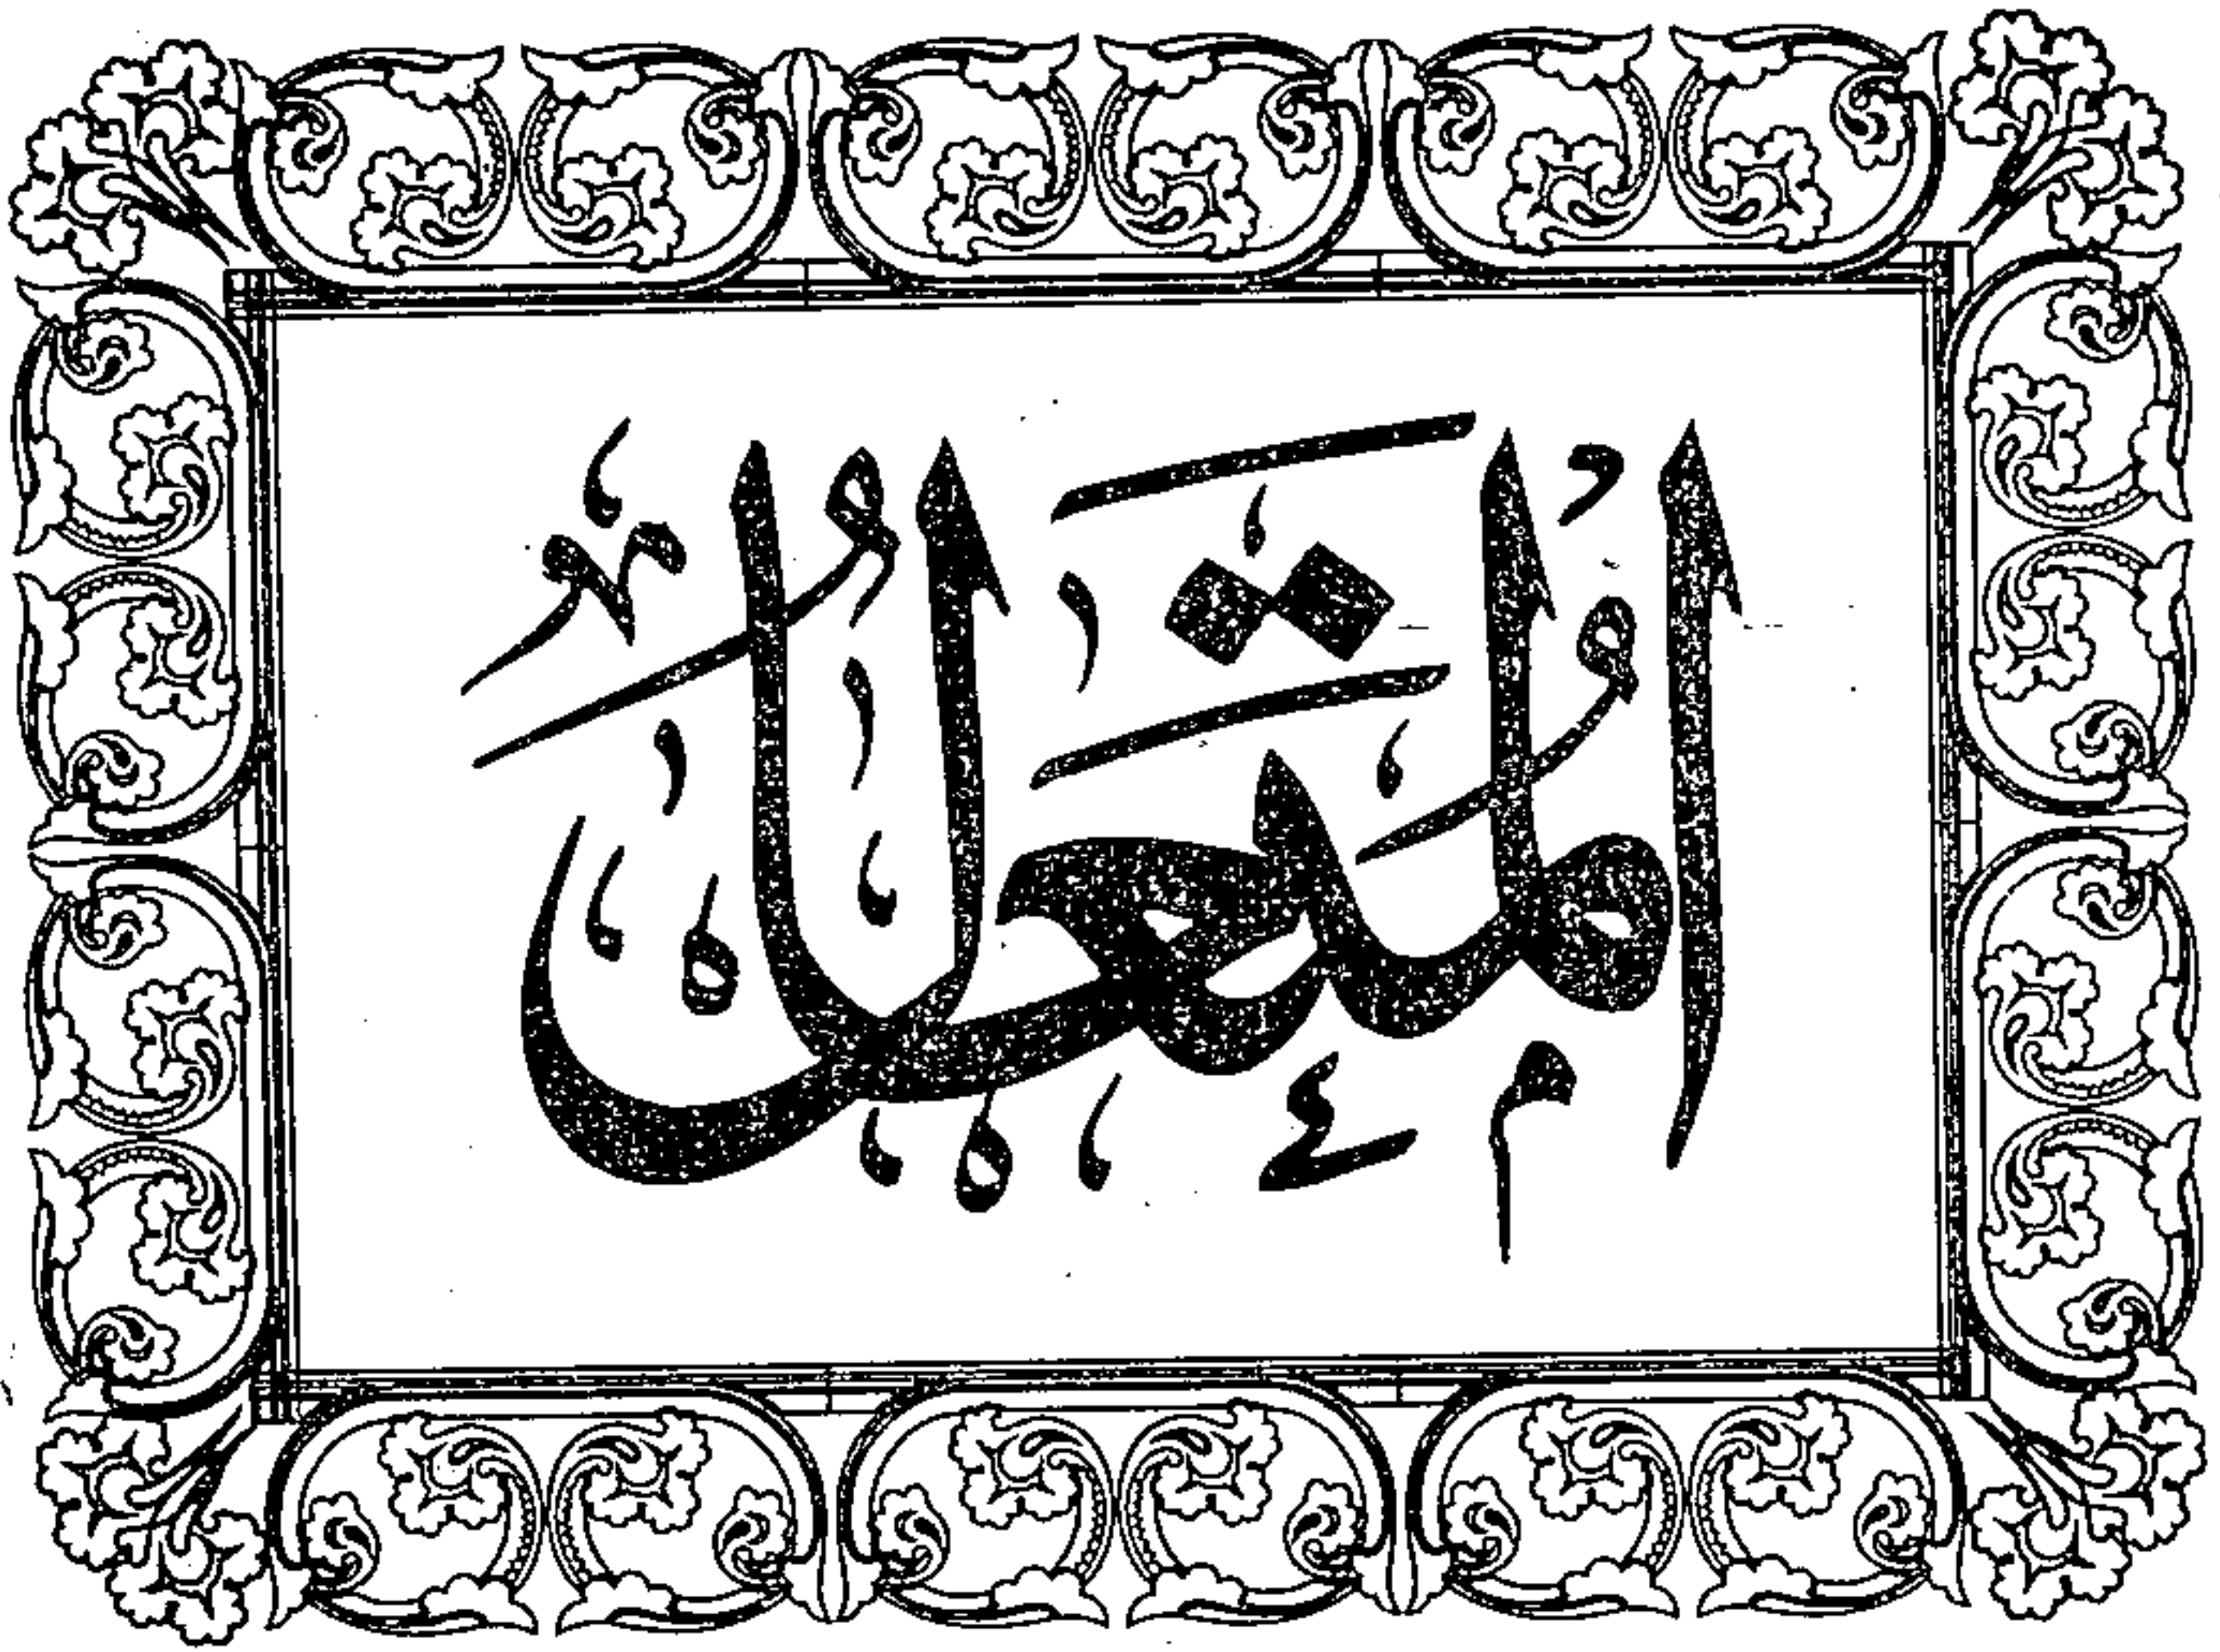 المُتَعَالُ